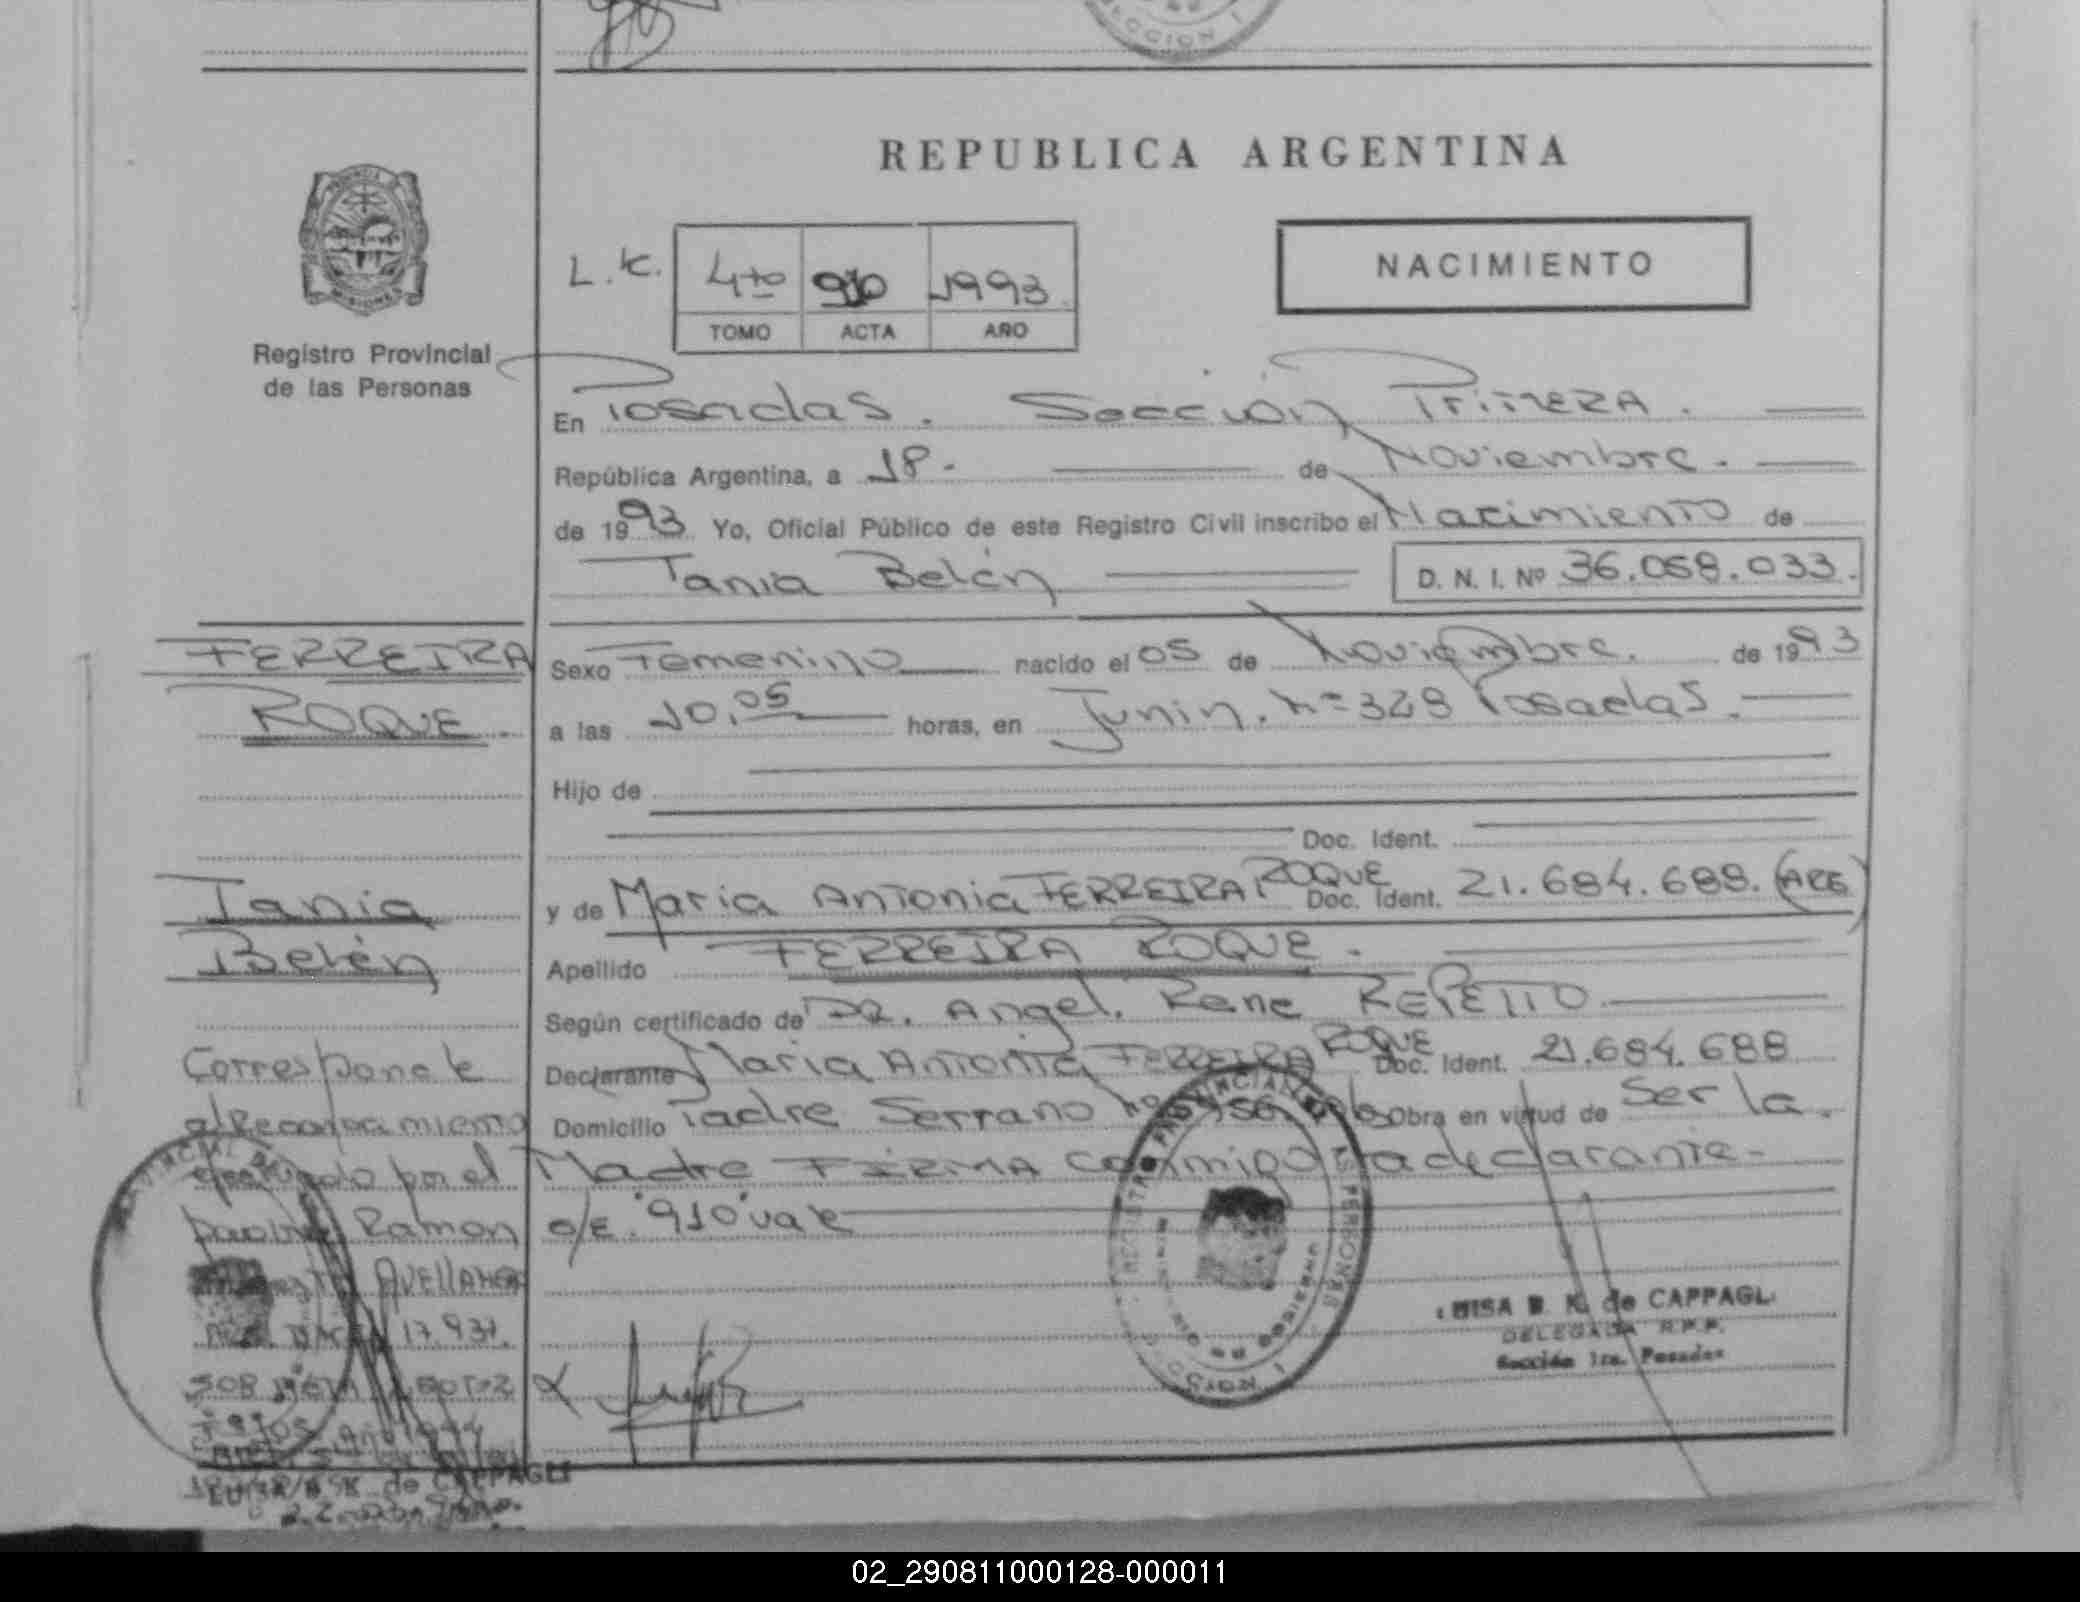 SECCION I
REPUBLICA ARGENTINA
PROVINCIA
MISIONES
L. K.
4to 910 1993.
TOMO ACTA AÑO
NACIMIENTO
Registro Provincial
de las Personas
En Posadas. Sección PRIMERA.
República Argentina, a 18. de Noviembre.
de 1993 Yo, Oficial Público de este Registro Civil inscribo el Nacimiento de
Tania Belén D. N. I. Nº 36.058.033.
FERREIRA
ROQUE.
Sexo Femenino nacido el 05 de Noviembre. de 1993
a las 10,05 horas, en Junin. nº 328 Posadas.
Hijo de
Doc. Ident.
Tania
Belén
y de Maria Antonia FERREIRA ROQUE Doc. Ident. 21.684.688. (ARG)
Apellido FERREIRA ROQUE.
Según certificado de DR. Angel. Rene REPETTO
Declarante Maria Antonia FERREIRA ROQUE Doc. Ident. 21.684.688
Domicilio Padre Serrano Obra en virtud de Ser la.
Madre FIRMA conmigo la declarante.
o/E. "910" vale
Corresponde
al Reconocimiento
efectuado por el
padre Ramon
AVELLANEDA
17.937.
LUISA B. K. de CAPPAGLI
DELEGADA R.P.P.
Sección 1ra. Posadas
LUISA B. K. de CAPPAGLI
02_290811000128-000011